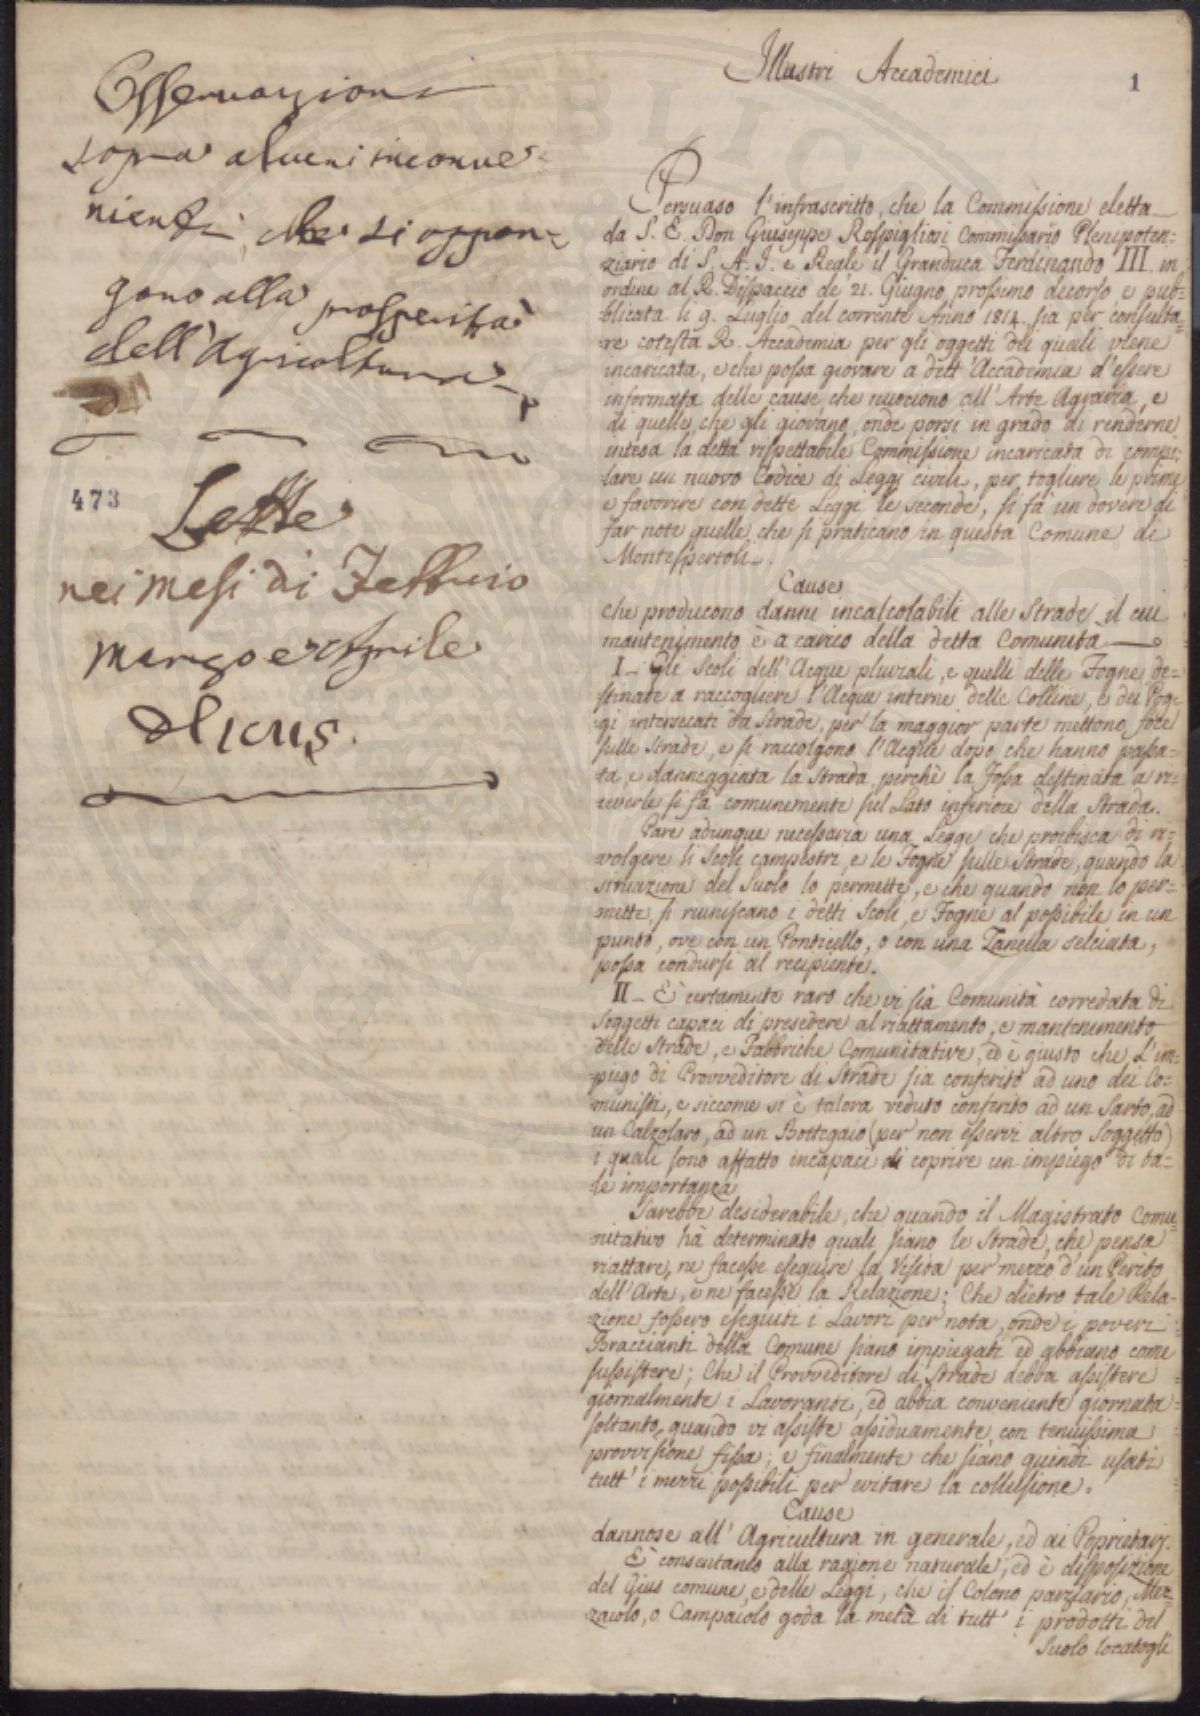 Osservazioni
sopra alcuni inconve-
nienti, che si oppon-
gono alla prosperità
dell'Agricoltura
473
Lette
nei Mesi di Febbraio
Marzo e Aprile
Illustri Accademici
1
Persuaso l'infrascritto, che la Commissione eletta
da S. E. Don Giuseppe Rospigliosi Commissario Plenipoten=
ziario di S. A. I. e Reale il Granduca Ferdinando III. in
ordine al R. Dispaccio de' 21. Giugno prossimo decorso, e pub=
blicata li 9. Luglio del corrente Anno 1814. sia per consulta=
re cotesta R. Accademia per gli oggetti dei quali viene
incaricata, e che possa giovare a dett' Accademia d'essere
informata delle cause, che nuociono all' Arte Agraria, e
di quelle, che gli giovano, onde porsi in grado di renderne
intesa la detta rispettabile Commissione incaricata di compi=
lare un nuovo Codice di Leggi civili, per togliere le prime
e favorire con dette Leggi le seconde, si fà un dovere di
far note quelle, che si praticano in questa Comune di
Montespertoli.
Cause
che producono danni incalcolabili alle Strade il cui
mantenimento è a carico della detta Comunita
I_ Gli Scoli dell'Acque pluviali, e quelli delle Fogne de=
stinate a raccogliere l'Acque interne delle Colline, e dei Pog=
gi intersecati da Strade, per la maggior parte mettono foce
sulle Strade, e si raccolgono l'Acque dopo che hanno passa=
ta, e danneggiata la Strada, perchè la Fossa destinata a ri=
ceverle si fà comunemente sul Lato inferiore della Strada.
Pare adunque necessaria una Legge che proibisca di ri=
volgere li Scoli campestri, e le Fogne sulle Strade, quando la
situazione del Suolo lo permette, e che quando non lo per=
mette, si riuniscano i detti Scoli, e Fogne al possibile in un
punto, ove con un Ponticello, o con una Zanella selciata,
possa condursi al recipiente.
II_ È certamente raro che vi sia Comunità corredata di
Soggetti capaci di presedere al riattamento, e mantenimento
delle Strade, e Fabbriche Comunitative, ed è giusto che L'im=
piego di Provveditore di Strade sia conferito ad uno dei Co=
munisti, e siccome si è talora veduto conferito ad un Sarto, ad
un Calzolaro, ad un Bottegaio (per non esservi altro Soggetto)
i quali sono affatto incapaci di coprire un impiego di ta=
le importanza
Sarebbe desiderabile, che quando il Magistrato Comu=
nitativo hà determinato quali siano le Strade, che pensa
riattare, ne facesse eseguire la Visita per mezzo d'un Perito
dell'Arte, e ne facesse la Relazione; Che dietro tale Rela=
zione fossero eseguiti i Lavori per nota, onde i poveri
Braccianti della Comune siano impiegati ed abbiano come
sussistere; Che il Provveditore di Strade debba assistere
giornalmente i Lavoranti, ed abbia conveniente giornata
soltanto, quando vi assiste assiduamente con tenuissima
provvisione fissa; e finalmente che siano quindi usati
tutt' i mezzi possibili per evitare la collusione.
Cause
dannose all' Agricultura in generale, ed ai Poprietarj.
È consentaneo alla ragione naturale, ed è disposizione
del Gius comune, e delle Leggi, che il Colono parziario, Mez=
zaiolo, o Campaiolo goda la metà di tutt' i prodotti del
Suolo locatogli